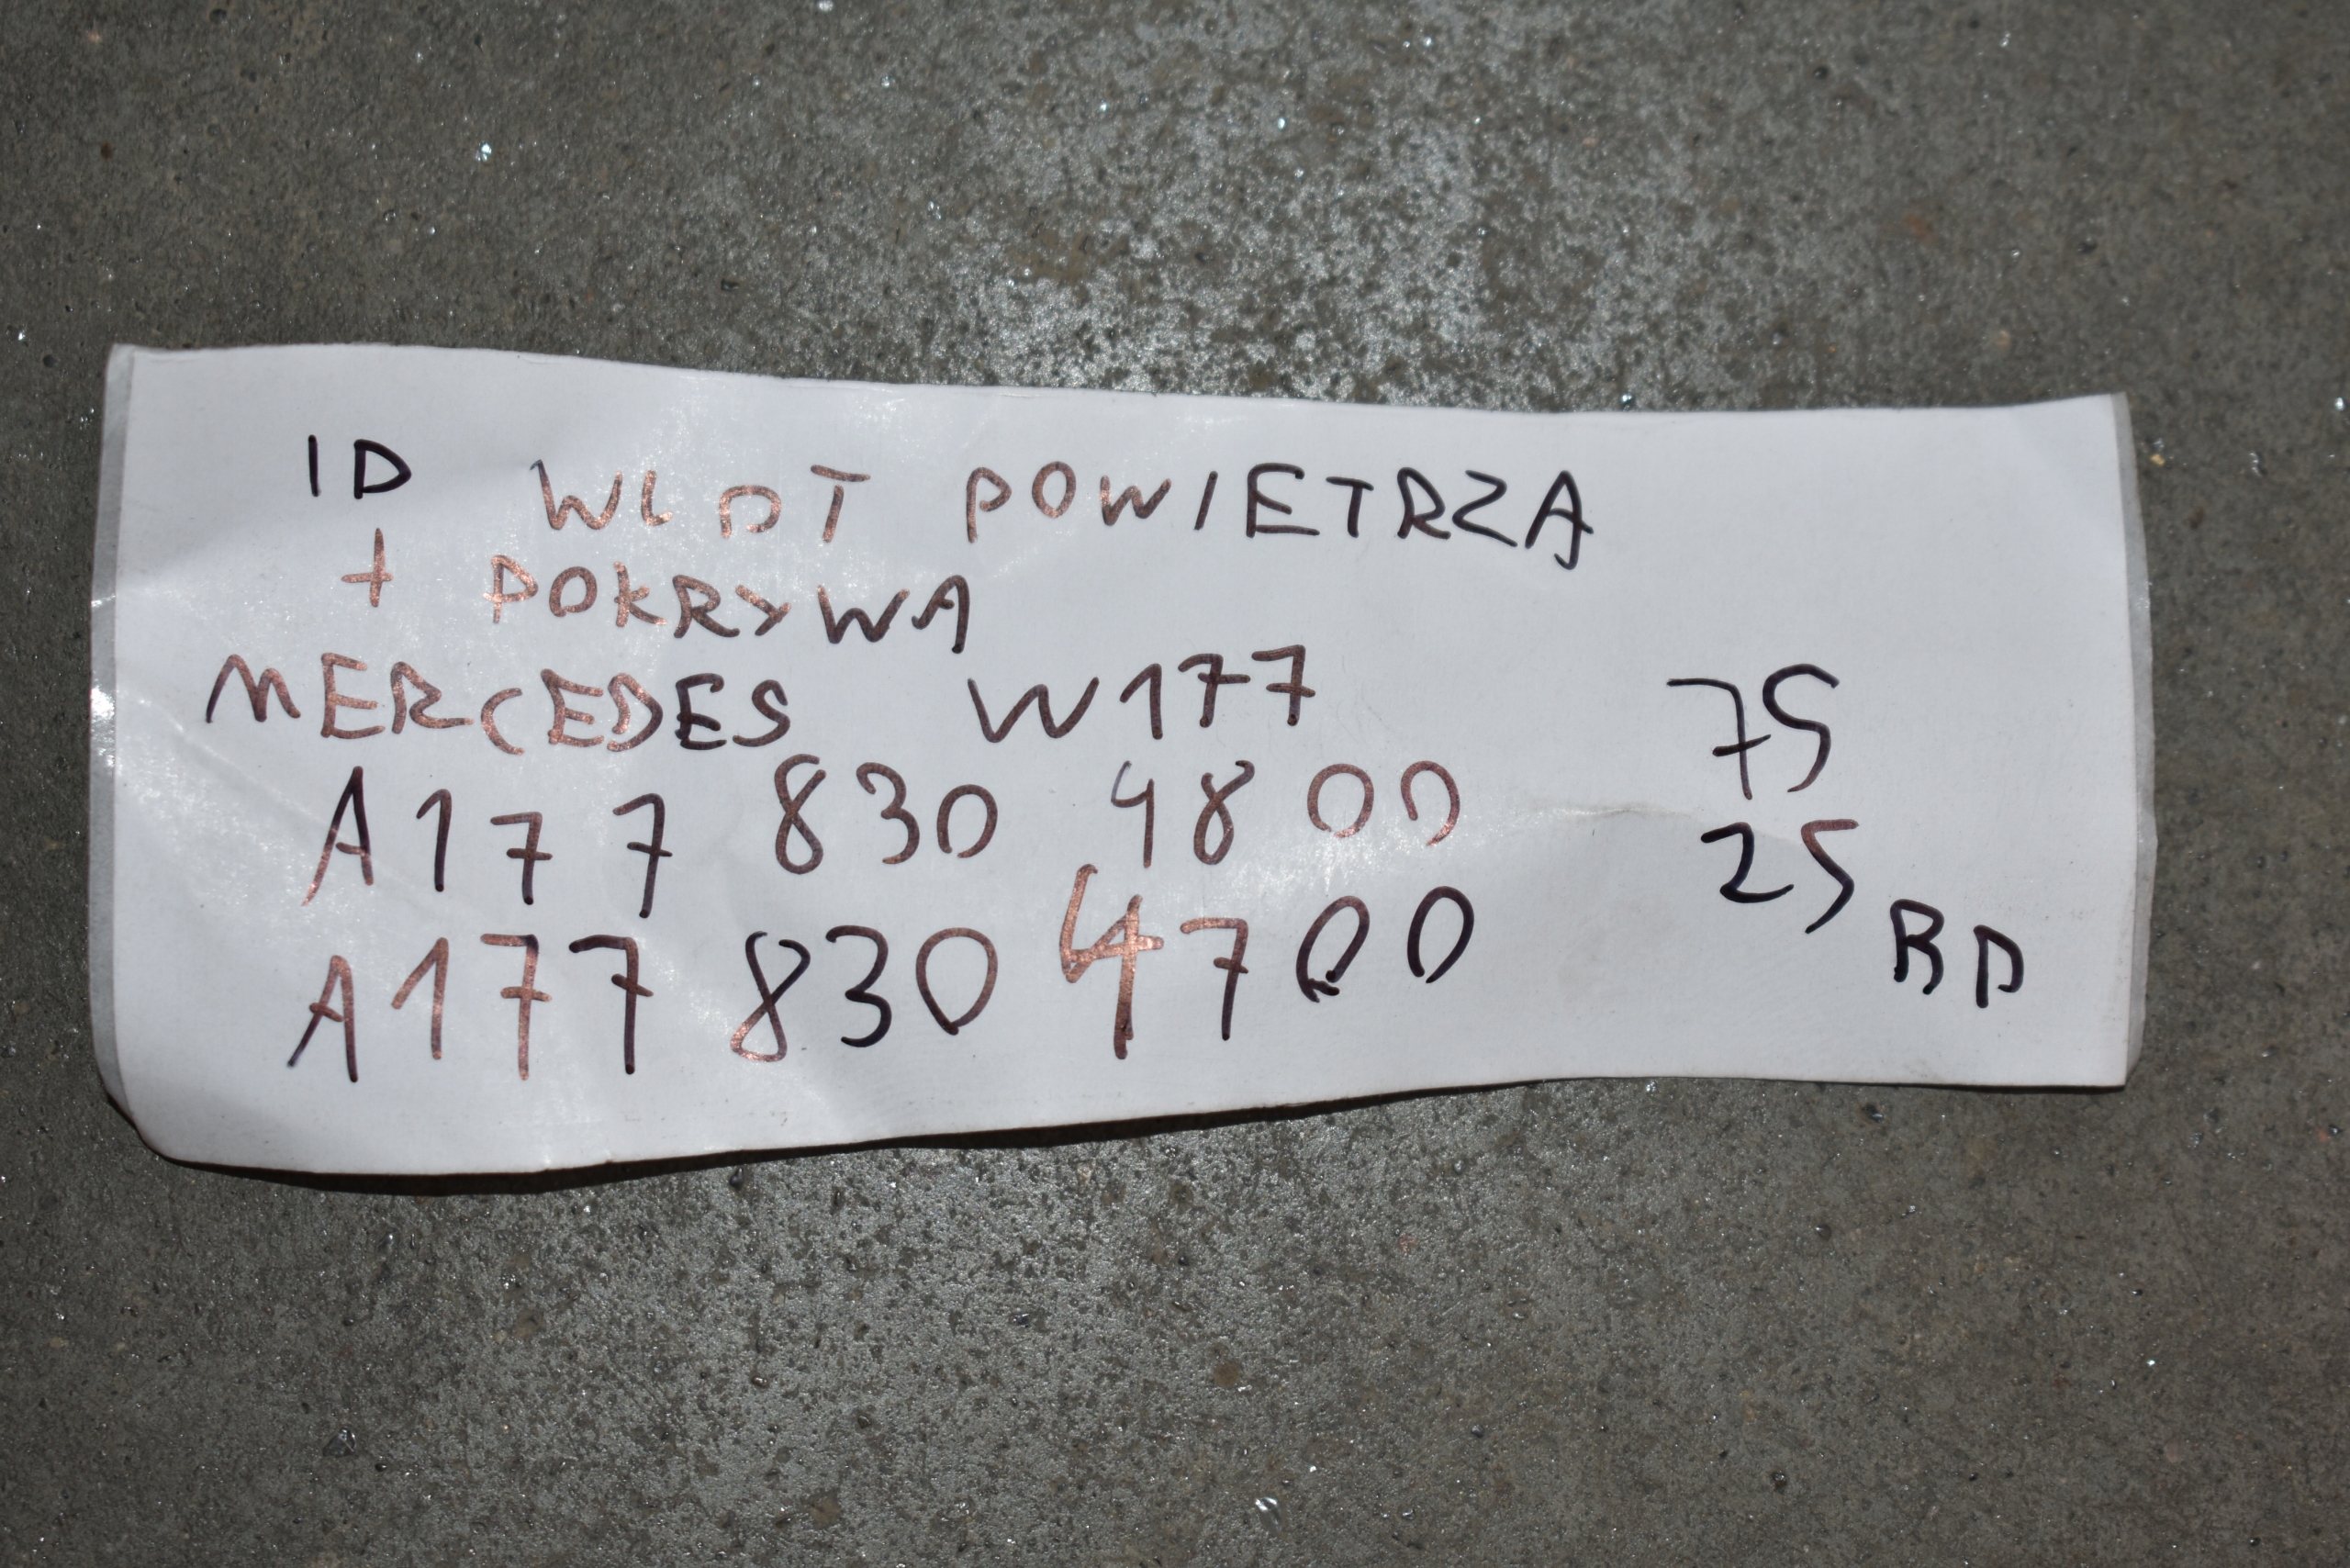 ID WLOT POWIETRZA
+ POKRYWA
MERCEDES W177
A177 830 4800
A177 830 4700
75
25
BD